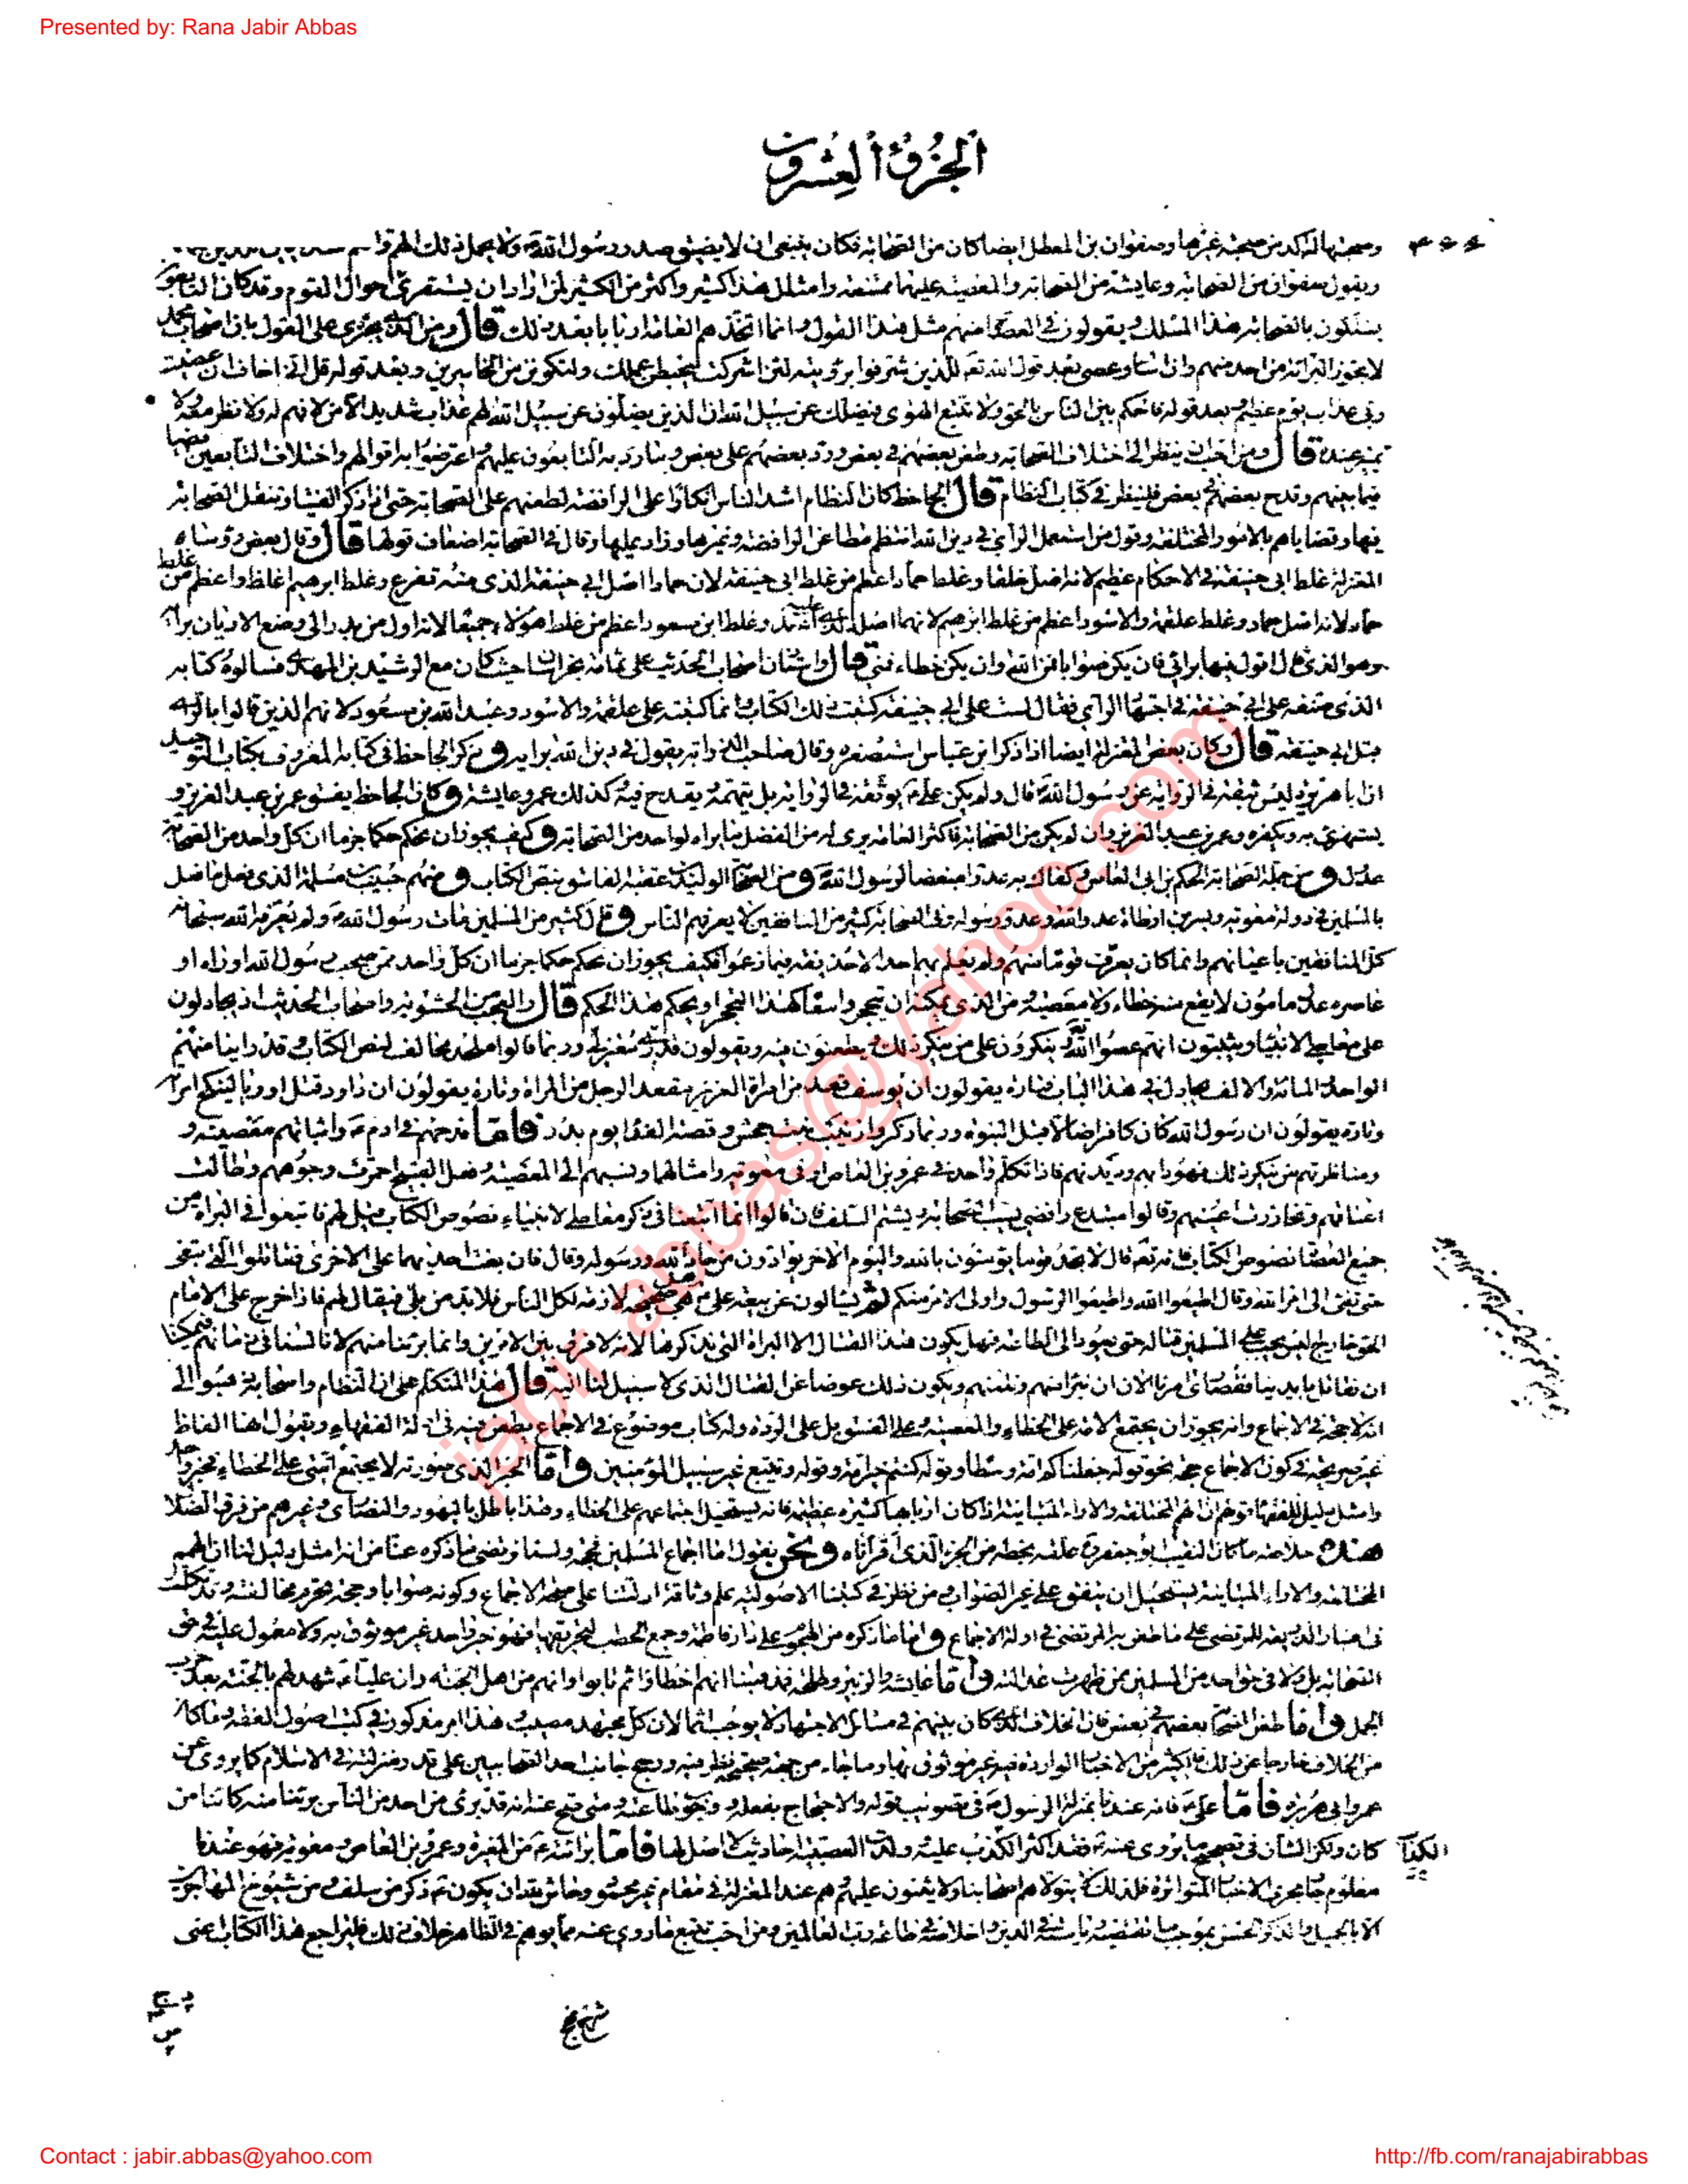 Presented by: Rana Jabir Abbas
الجزؤ العشرون
وصحبتها له اكد من صحبة غيرها وصفوان بن المعطل ايضا كان من الصحابة فكان ينبغى ان لا يضيق صدر رسول الله ولا يحمل ذلك الهم و
ويقول صفوان من الصحابة وعايشة من الصحابة والمعصية عليهما ممتنعة وامثال هذا كثير واكثر من الكثير لمن اراد ان يستقرئ احوال القوم وقد كان التابعون
يسلكون بالصحابة هذا المسلك ويقولون فى العصاة منهم مثل هذا القول وانما اتخذهم العامة اربابا بعد ذلك قال ومن الذى يجترى على القول بان اصحاب محمد
لا يجوز البرائة من احد منهم وان اساء وعصى بعد قول الله تعالى للذين شرفوا برؤيته لئن اشركت ليحبطن عملك ولتكونن من الخاسرين وبعد قوله قل انى اخاف ان عصيت
ربى عذاب يوم عظيم وبعد قوله فاحكم بين الناس بالحق ولا تتبع الهوى فيضلك عن سبيل الله ان الذين يضلون عن سبيل الله لهم عذاب شديد الا من لا فهم له ولا نظر معه ولا
تميز عنده قال ومن احب ان ينظر الى اختلاف الصحابة وطعن بعضهم فى بعض ورد بعضهم على بعض وما رد به التابعون عليهم واعترضوا به اقوالهم واختلاف التابعين
فيما بينهم وقدح بعضهم فى بعض فلينظر فى كتاب النظام قال الجاحظ كان النظام اشد الناس انكارا على الرافضة لطعنهم على الصحابة حتى اذا ذكر الفتيا وتنقل الصحابة
فيها وقضاياهم بالامور المختلفة وقول من استعمل الراى فى دين الله انتظم مطاعن الرافضة وغيرها وزاد عليها وقال فى الصحابة اضعاف قولها قال وقال بعض رؤساء
المعتزلة غلط ابى حنيفة فى الاحكام عظيم لانه اضل خلقا وغلط حماد اعظم من غلط ابى حنيفة لان حمادا اصل ابى حنيفة الذى منه تفرع وغلط ابرهيم اغلظ واعظم من غلط
حماد لانه اصل حماد وغلط علقمة والاسود اعظم من غلط ابرهيم لانهما اصله الذى عليه اعتمد وغلط ابن مسعود اعظم من غلط هؤلاء جميعا لانه اول من بدر الى وضع الاديان برايه
وهو الذى قال اقول فيها برائى فان يكن صوابا فمن الله وان يكن خطاء فمنى قال واستاذن اصحاب الحديث على ثمامة بخراسان حيث كان مع الرشيد بن المهدى فسالوه كتابه
الذى صنفه على ابى حنيفة فى اجتهاد الراى فقال لست على ابى حنيفة كتبت ذلك الكتاب وانما كتبته على علقمة والاسود وعبد الله بن مسعود لانهم الذين قالوا بالراى
قبل ابى حنيفة قال وكان بعض المعتزلة ايضا اذا ذكر ابن عباس استصغره وقال صاحب الذؤابة يقول فى دين الله برايه وذكر الجاحظ فى كتابه المعروف بكتاب التوحيد
ان ابا هريرة ليس بثقة فى الرواية عن رسول الله قال ولم يكن على يوثقه فى الرواية بل يتهمه ويقدح فيه وكذلك عمر وعايشة وكان الجاحظ يفسق عمر بن عبد العزيز و
يستهزئ به ويكفره وعمر بن عبد العزيز وان لم يكن من الصحابة فاكثر العامة يرى له من الفضل ما يراه لواحد من الصحابة وكيف يجوز ان نحكم حكما جزما ان كل واحد من الصحابة
عدل ومن جملة الصحابة الحكم بن ابى العاص وكفاك به عدوا مبغضا لرسول الله ومن الصحابة الوليد بن عقبة الفاسق بنص الكتاب ومنهم حبيب بن مسلمة الذى فعل ما فعل
بالمسلمين فى دولة معوية وبسر بن ارطاة عدو الله وعدو رسوله وفى الصحابة كثير من المنافقين لا يعرفهم الناس وقال كثير من المسلمين مات رسول الله ولم يعرفه الله سبحانه
كل المنافقين باعيانهم وانما كان يعرف قوما منهم ولم يعلم بهم احدا الا حذيفة فيما زعموا فكيف يجوز ان نحكم حكما جزما ان كل واحد ممن صحب رسول الله او راه او
عاصره عدل مامون لا يقع منه خطاء ولا معصية ومن الذى يمكنه ان يتحجر واسعا كهذا التحجر او يحكم هذا الحكم قال والعجب من الحشوية واصحاب الحديث اذ يجادلون
على معاصى الانبياء ويثبتون انهم عصوا الله وينكرون على من ينكر ذلك ويطعنون فيه ويقولون قدرى معتزلى وربما قالوا ملحد مخالف لنص الكتاب وقد راينا منهم
الواحد والمائة والالف يجادل فى هذا الباب فتارة يقولون ان يوسف قعد من امراة العزيز مقعد الرجل من المراة وتارة يقولون ان داود قتل اوريا لينكح امراته
وتارة يقولون ان رسول الله كان كافرا ضالا قبل النبوة وربما ذكروا زينب بنت جحش وقصة الفداء يوم بدر فاما قدحهم فى ادم واثباتهم معصيته و
ومناظرتهم من ينكر ذلك فهو دابهم وديدنهم فاذا تكلم واحد فى عمرو بن العاص او فى معوية وامثالهما ونسبهم الى المعصية وفعل القبيح احمرت وجوههم وطالت
اعناقهم وتخازرت اعينهم وقالوا مبتدع رافضى يسب الصحابة ويشتم السلف فان قالوا انما اتبعنا فى ذكر معاصى الانبياء نصوص الكتاب قيل لهم فاتبعوا فى البراءة من
جميع العصاة نصوص الكتاب فانه تعالى قال لا تجد قوما يؤمنون بالله واليوم الاخر يوادون من حاد الله ورسوله وقال فان بغت احديهما على الاخرى فقاتلوا التى تبغى
حتى تفئ الى امر الله وقال اطيعوا الله واطيعوا الرسول واولى الامر منكم ثم يسالون عن بيعة على هل هى صحيحة لازمة لكل الناس فلا بد من بلى فيقال لهم فاذا خرج على الامام
الحق خارج اليس يجب على المسلمين قتاله حتى يعود الى الطاعة فهل يكون هذا القتال الا البراءة التى نذكرها لانه لا فرق بين الامرين وانما برئنا منهم لانا لسنا فى زمانهم فيمكننا
ان نقاتل بايدينا فقصارى امرنا الان ان نبرا منهم ونلعنهم ويكون ذلك عوضا عن القتال الذى لا سبيل لنا اليه قال هذا المتكلم على ان النظام واصحابه ذهبوا الى
انه لا حجة فى الاجماع وانه يجوز ان يجتمع الامة على الخطاء والمعصية وعلى الفسق بل على الردة وله كتاب موضوع فى الاجماع يطعن فيه فى ادلة الفقهاء ويقول انها الفاظ
غير صريحة فى كون الاجماع حجة نحو قوله جعلناكم امة وسطا وقوله كنتم خير امة وقوله ويتبع غير سبيل المؤمنين واما الخبر الذى صورته لا يجتمع امتى على الخطاء فخبر واحد
وامثل دليل للفقهاء قولهم ان الهمم المختلفة والاراء المتباينة اذا كان اربابها كثيرة عظيمة فانه يستحيل اجتماعهم على الخطاء وهذا باطل باليهود والنصارى وغيرهم من فرق الضلال
هذه خلاصة ما كان النقيب ابو جعفر علقه بخطه من الجزء الذى اقراناه ونحن نقول اما اجماع المسلمين فحجة ولسنا نرتضى ما ذكره عنا من انه امثل دليل لنا ان الهمم
المختلفة والاراء المتباينة يستحيل ان يتفق على غير الصواب ومن نظر فى كتبنا الاصولية علم وثاقة ادلتنا على صحة الاجماع وكونه صوابا وحجة تحرم مخالفته وقد تكلمت
فى اعتبار الذريعة للمرتضى على ما طعن به المرتضى فى ادلة الاجماع واما ما ذكره من الهجوم على دار فاطمة وجمع الحطب لتحريقها فهو خبر واحد غير موثوق به ولا معول عليه فى حق
الصحابة بل ولا فى حق احد من المسلمين ممن ظهرت عدالته واما عايشة والزبير وطلحة فمذهبنا انهم اخطاوا ثم تابوا وانهم من اهل الجنة وان عليا شهد لهم بالجنة بعد حرب
الجمل واما طعن الصحابة بعضهم فى بعض فان الخلاف الذى كان بينهم فى مسائل الاجتهاد لا يوجب اثما لان كل مجتهد مصيب وهذا امر مذكور فى كتب اصول الفقه وما كان
من الخلاف خارجا عن ذلك فالكثير من الاخبار الواردة فيه غير موثوق بها وما جاء من جهة صحيحة نظر فيه ورجح جانب احد الصحابيين على قدر منزلته فى الاسلام كما يروى عن
عمر وابى هريرة فاما على فانه عندنا بمنزلة الرسول فى تصويب قوله والاحتجاج بفعله ووجوب طاعته ومتى صح عنه انه قد برئ من احد من الناس برئنا منه كائنا من
كان ولكن الشان فى تصحيح ما يروى عنه فقد اكثر الكذب عليه وولدت العصبية احاديث لا اصل لها فاما براءته من المغيرة وعمرو بن العاص ومعوية فهو عندنا
معلوم جار مجرى الاخبار المتواترة فلذلك لا يتولاهم اصحابنا ولا يثنون عليهم وهم عند المعتزلة فى مقام غير محمود وحاش لله ان يكون ذكر من سلف من شيوخ المهاجرين
الا بالجميل والذكر الحسن بموجب ما تقتضيه رياستهم فى الدين واخلاصهم فى طاعة رب العالمين ومن احب تتبع ما روى عنه مما يوهم فى الظاهر خلاف ذلك فليراجع هذا الكتاب اعنى
jabir.abbas@yahoo.com
Contact : jabir.abbas@yahoo.com
http://fb.com/ranajabirabbas